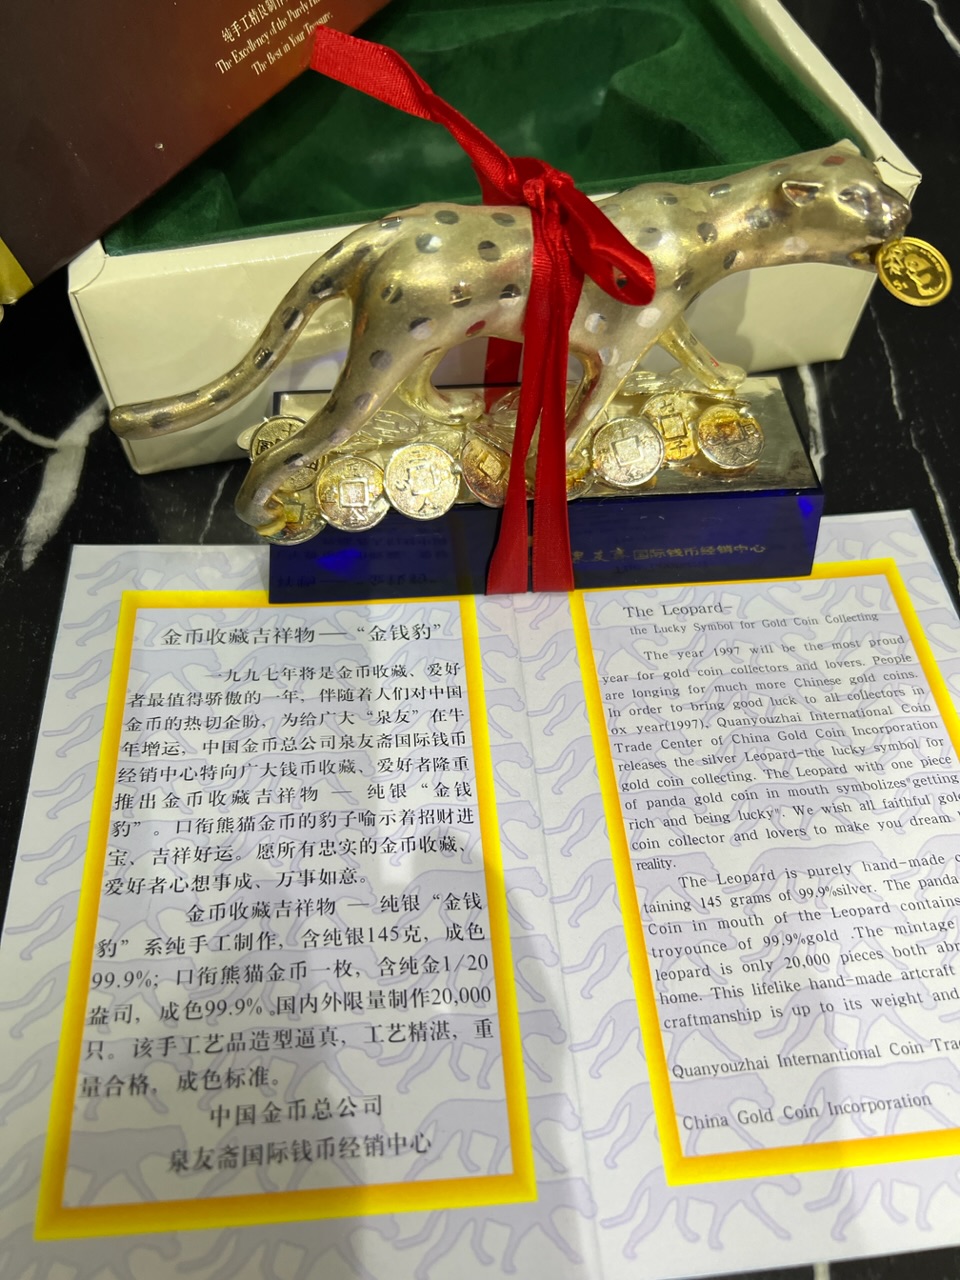 纯手工精良制作
The Excellency of the Purely
The Best in Your Treasure.
5
国际钱币经销中心
金币收藏吉祥物——“金钱豹”
一九九七年将是金币收藏、爱好
者最值得骄傲的一年，伴随着人们对中国
金币的热切企盼，为给广大“泉友”在牛
年增运，中国金币总公司泉友斋国际钱币
经销中心特向广大钱币收藏、爱好者隆重
推出金币收藏吉祥物 — 纯银“金钱
豹”。口衔熊猫金币的豹子喻示着招财进
宝、吉祥好运。愿所有忠实的金币收藏、
爱好者心想事成、万事如意。
金币收藏吉祥物 — 纯银“金钱
豹”系纯手工制作，含纯银145克，成色
99.9%；口衔熊猫金币一枚，含纯金1/20
盎司，成色99.9%。国内外限量制作20,000
只。该手工艺品造型逼真，工艺精湛，重
量合格，成色标准。
中国金币总公司
泉友斋国际钱币经销中心
The Leopard—
the Lucky Symbol for Gold Coin Collecting
The year 1997 will be the most proud
year for gold coin collectors and lovers. People
are longing for much more Chinese gold coins.
in order to bring good luck to all collectors in
ox year(1997), Quanyouzhai International Coin
Trade Center of China Gold Coin Incorporation
releases the silver Leopard—the lucky symbol for
gold coin collecting. The Leopard with one piece
of panda gold coin in mouth symbolizes"getting
rich and being lucky". We wish all faithful gold
coin collector and lovers to make you dream
reality.
The Leopard is purely hand-made
taining 145 grams of 99.9%silver. The panda
Coin in mouth of the Leopard contains
troyounce of 99.9%gold .The mintage
leopard is only 20,000 pieces both
home. This lifelike hand-made artcraft
craftmanship is up to its weight and
Quanyouzhai Internantional Coin
China Gold Coin Incorporation